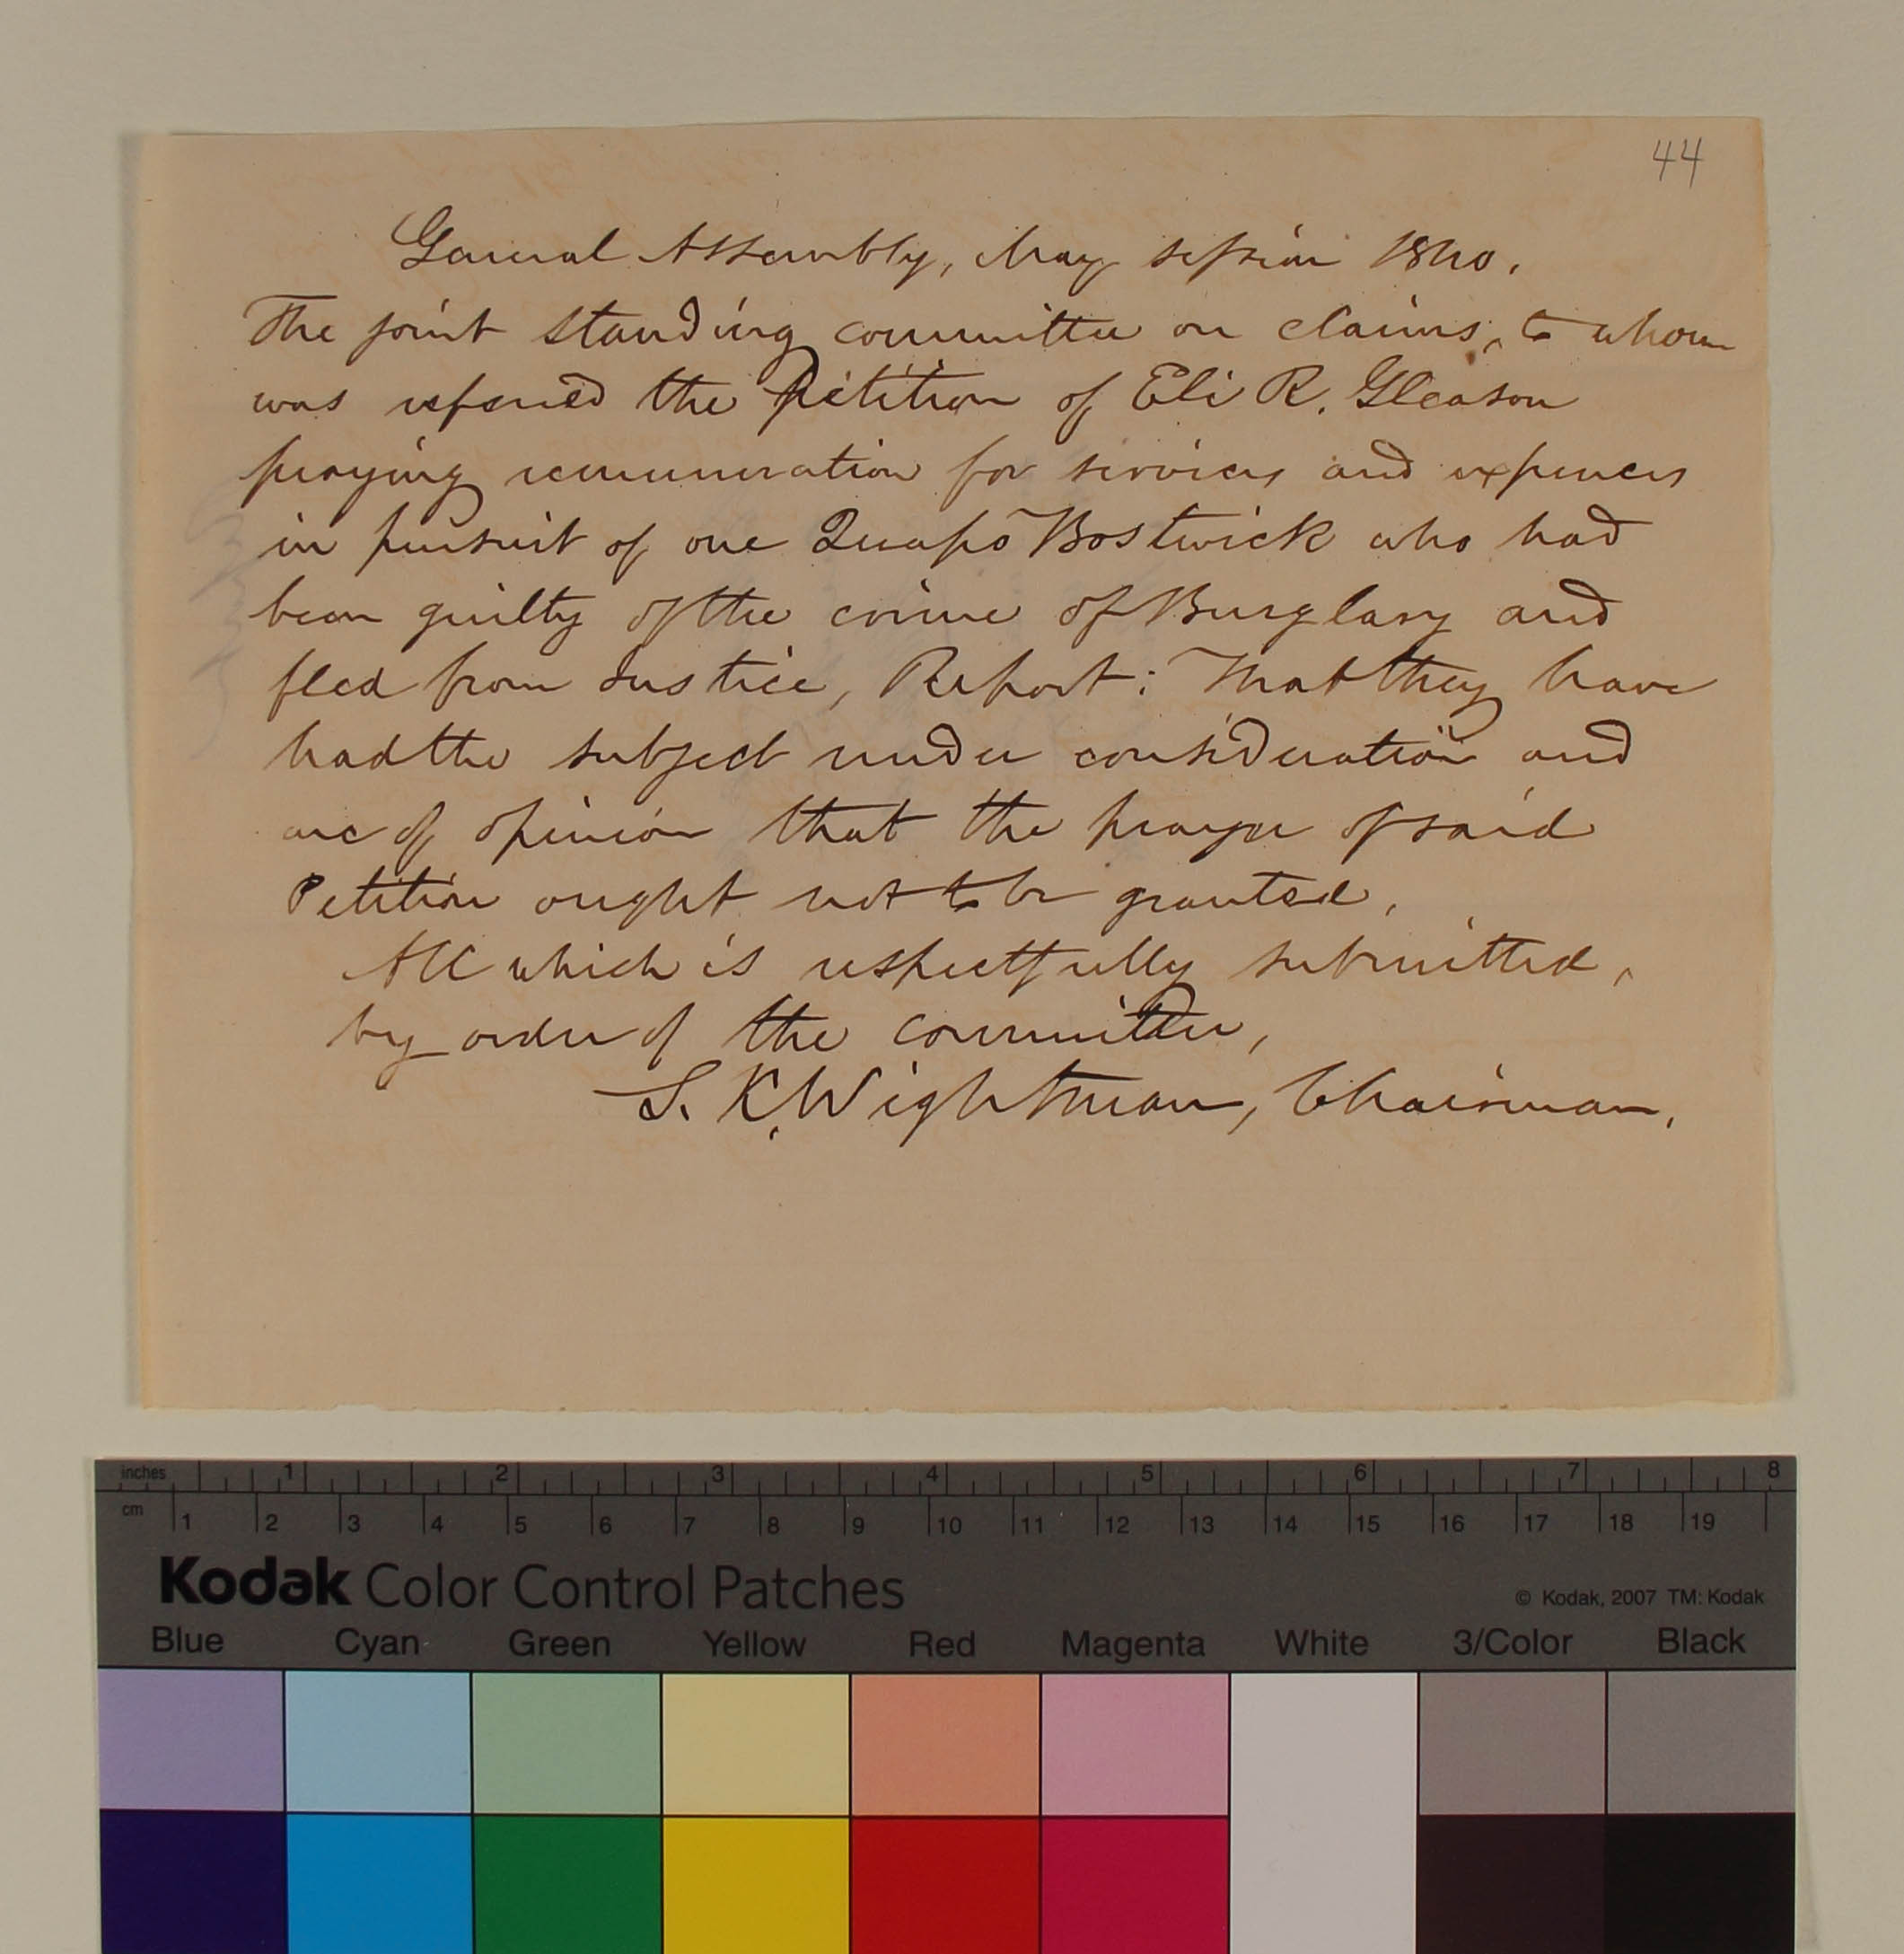 44
General Assembly, May session 1840.
The joint standing committee on claims, to whom
was referred the Petition of Eli R. Gleason
praying remuneration for services and expences
in pursuit of one Quapo Bostwick who had
been guilty of the crime of Burglary and
fled from Justice, Report: That they have
had the subject under consideration and
are of opinion that the prayer of said
Petition ought not to be granted.
All which is respectfully submitted,
by order of the committee,
S. K. Wightman, Chairman.
inches 1 2 3 4 5 6 7 8
cm 1 2 3 4 5 6 7 8 9 10 11 12 13 14 15 16 17 18 19
Kodak Color Control Patches
© Kodak, 2007 TM: Kodak
Blue Cyan Green Yellow Red Magenta White 3/Color Black